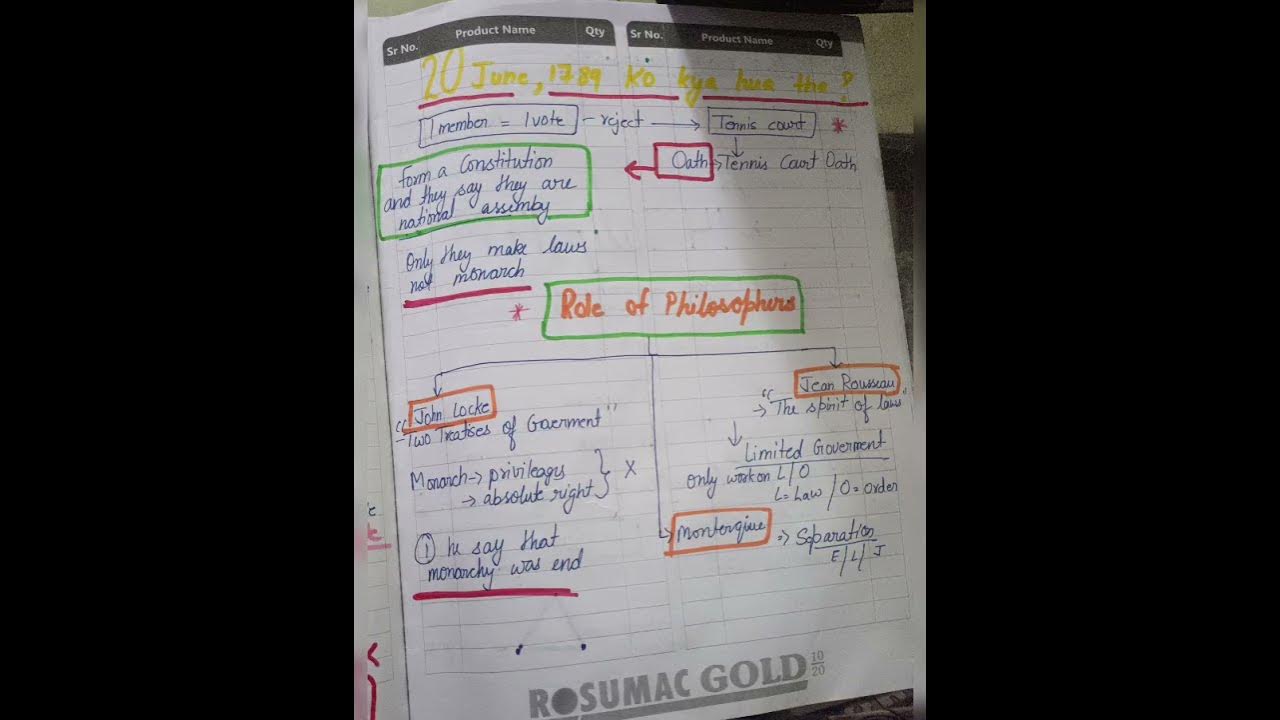 Sr No. Product Name Qty Sr No. Product Name Qty
20 June, 1789 ko kya hua tha?
1 member = 1 vote - reject → Tennis court *
Oath → Tennis Court Oath
form a Constitution
and they say they are
national assemby
Only they make laws
not monarch
* Role of Philosophers
John Locke
"Two Treatises of Goverment"
Monarch → privileages
→ absolute right } X
① he say that
monarchy was end
Jean Rousseau
→ "The spirit of laws"
Limited Goverment
only work on L/O
L = Law / O = Order
Montesqiue => Separation
E/L/J
ROSUMAC GOLD 10/20